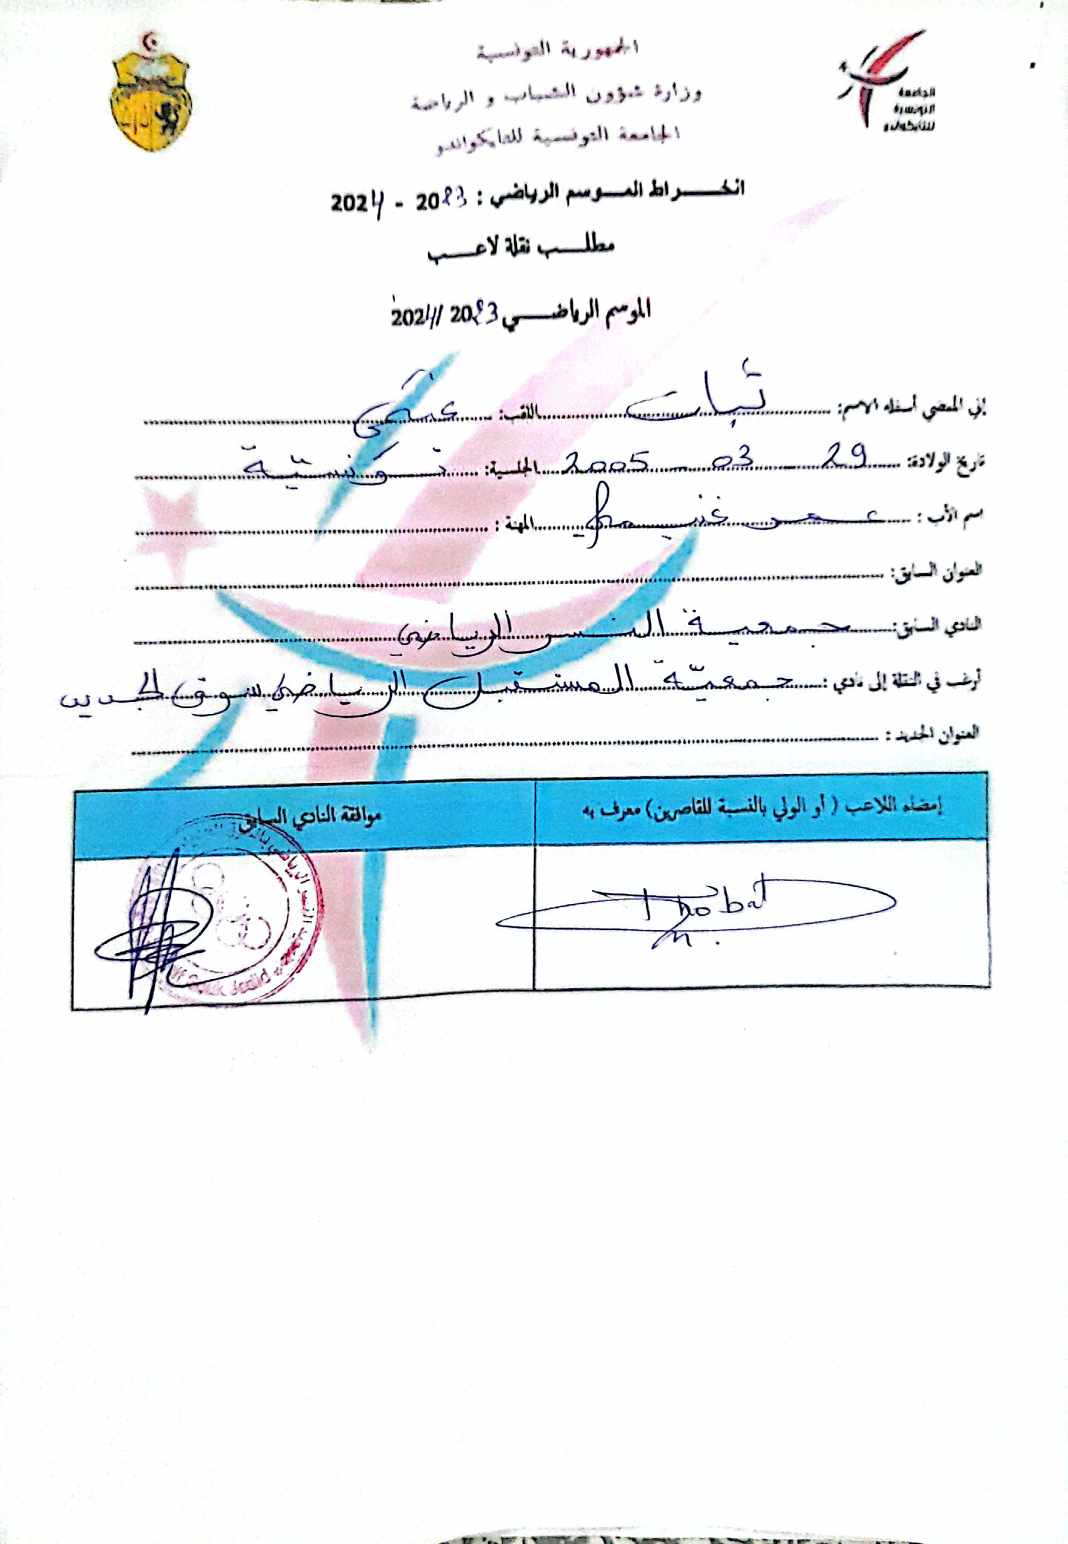 الجمهورية التونسية
وزارة شؤون الشباب و الرياضة
الجامعة التونسية للتايكواندو
الجامعة
التونسية
للتايكواندو
انخــــراط المــوسم الرياضي : 2023 - 2024
مطلــــب نقلة لاعــــب
الموسم الرياضــــي 2023 / 2024
إني الممضي أسفله الاسم: ثبات اللقب:
تاريخ الولادة: 29 03 2005 الجنسية: تونسيّة
اسم الأب : عمر المهنة :
العنوان السابق:
النادي السابق: جمعية النسر الرياضي
أرغب في النقلة إلى نادي : جمعيّة المستقبل الرياضي سوق الجديد
العنوان الجديد :
إمضاء اللاعب ( أو الولي بالنسبة للقاصرين) معرف به
موافقة النادي السابق
Thobat
Souk Jedid